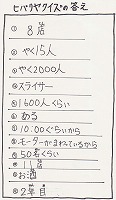 ヒバリヤクイズの答え
① 8 店
② やく15人
③ やく2000人
④ スライサー
⑤ 1600人くらい
⑥ ある
⑦ 10:00ぐらいから
⑧ モーターがまわっているから
⑨ 50名くらい
⑩ 11店
⑪ お酒
⑫ 2年目